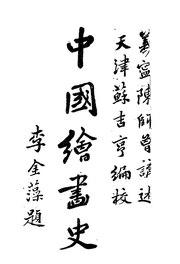 義寧陳師曾講述
天津蘇吉亨編校
中國繪畫史
李金藻題